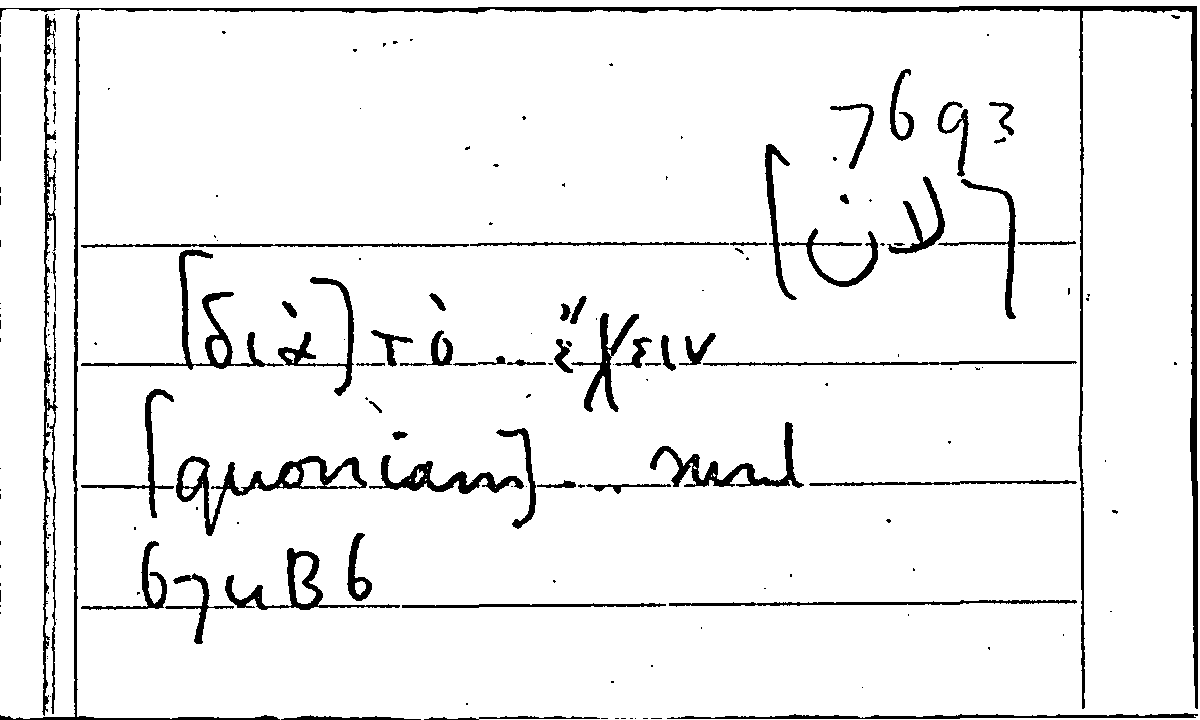 7693
[لان]
[διὰ] τὸ ... ἔχειν
[quoniam] ... sunt
674B6